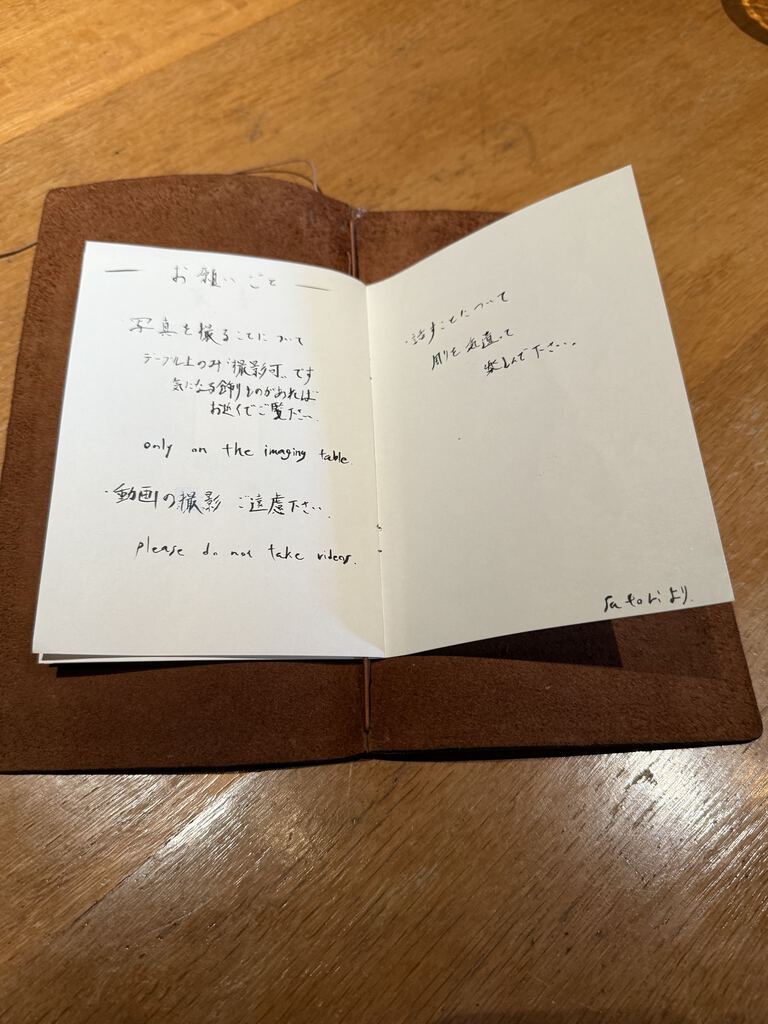 お願いごと
・写真を撮ることについて
テーブル上のみ撮影可です
気になる飾りものがあれば
お近くでご覧下さい.
only on the imaging table.
・動画の撮影 ご遠慮下さい.
please do not take videos.
・話すことについて
周りを気遣って
楽しんで下さい。
satoriより.